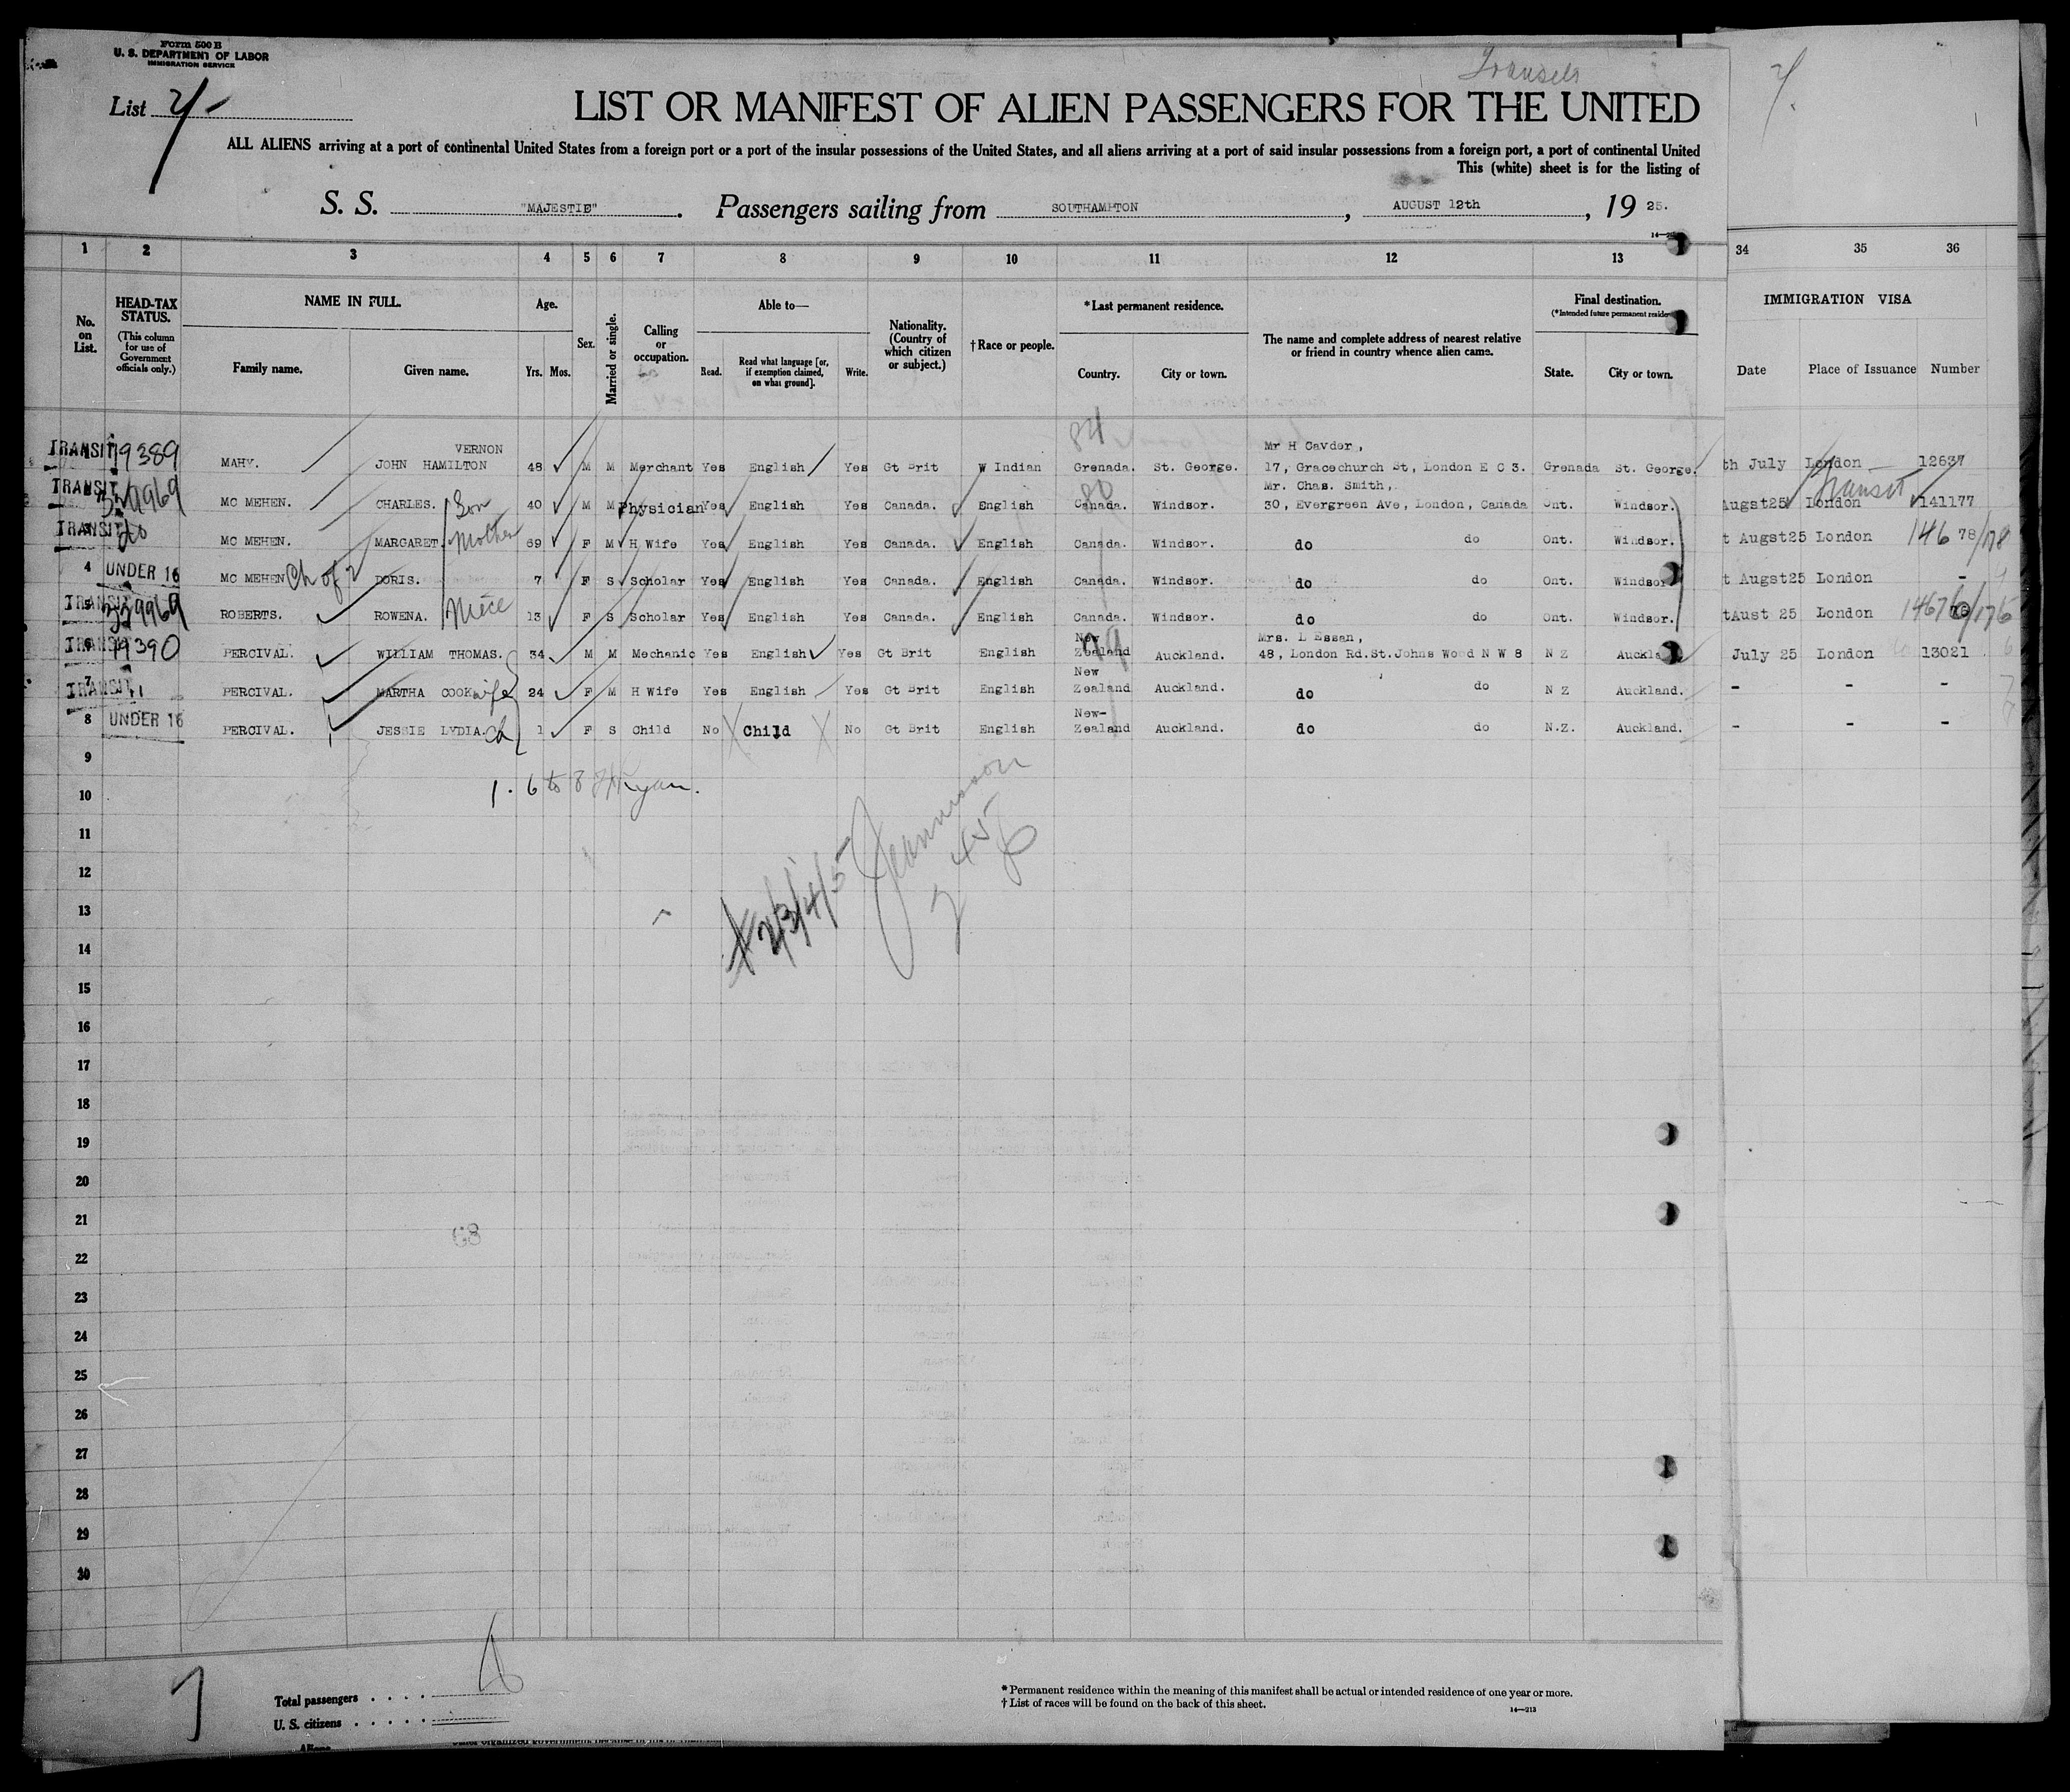 Form 500 B
U. S. DEPARTMENT OF LABOR
IMMIGRATION SERVICE
Transit
List 4
LIST OR MANIFEST OF ALIEN PASSENGERS FOR THE UNITED
ALL ALIENS arriving at a port of continental United States from a foreign port or a port of the insular possessions of the United States, and all aliens arriving at a port of said insular possessions from a foreign port, a port of continental United
This (white) sheet is for the listing of
S. S. "MAJESTIC". Passengers sailing from SOUTHAMPTON, AUGUST 12th, 19 25.
1 2 3 4 5 6 7 8 9 10 11 12 13 34 35 36
No. on List.
HEAD-TAX STATUS.
(This column for use of Government officials only.)
NAME IN FULL.
Family name. Given name.
Age.
Yrs. Mos.
Sex.
Married or single.
Calling or occupation.
Able to—
Read. Read what language [or, if exemption claimed, on what ground]. Write.
Nationality. (Country of which citizen or subject.)
† Race or people.
*Last permanent residence.
Country. City or town.
The name and complete address of nearest relative or friend in country whence alien came.
Final destination.
(*Intended future permanent reside
State. City or town.
IMMIGRATION VISA
Date Place of Issuance Number
84
VERNON Mr H Cavder,
TRANSIT 19389 MAHY. JOHN HAMILTON 48 M M Merchant Yes English Yes Gt Brit W Indian Grenada. St. George. 17, Gracechurch St, London E C 3. Grenada St. George. th July London 12637
80 Mr. Chas. Smith, Transit
TRANSIT 339969 MC MEHEN. CHARLES. Son 40 M M Physician Yes English Yes Canada. English Canada. Windsor. 30, Evergreen Ave, London, Canada Ont. Windsor. Augst25 London 141177
TRANSIT do MC MEHEN. MARGARET. Mother 69 F M H Wife Yes English Yes Canada. English Canada. Windsor. do do Ont. Windsor. t Augst25 London 146 78/178
4 UNDER 16 MC MEHEN Ch of 2 DORIS. 7 F S Scholar Yes English Yes Canada. English Canada. Windsor. do do Ont. Windsor t Augst25 London -
TRANSIT 339969 ROBERTS. ROWENA. Niece 13 F S Scholar Yes English Yes Canada. English Canada. Windsor. do do Ont. Windsor. tAust 25 London 14676/176
New Mrs. L Essan,
TRANSIT 19390 PERCIVAL. WILLIAM THOMAS. 34 M M Mechanic Yes English Yes Gt Brit English Zealand Auckland. 48, London Rd.St.Johns Wood N W 8 N Z Auckla July 25 London 13021
New
7 TRANSIT PERCIVAL. MARTHA COOK wife 24 F M H Wife Yes English Yes Gt Brit English Zealand Auckland. do do N Z Auckland. - - -
New-
8 UNDER 16 PERCIVAL. JESSIE LYDIA. ch 1 F S Child No Child No Gt Brit English Zealand Auckland. do do N.Z. Auckland. - - -
9
1 . 6 to 8 Ryan.
10
11
12
2/3/4/5
13
14
15
16
17
18
19
20
21
22
23
24
25
26
27
28
29
30
Total passengers . . . .
U. S. citizens . . . . .
Aliens
* Permanent residence within the meaning of this manifest shall be actual or intended residence of one year or more.
† List of races will be found on the back of this sheet.
14—213